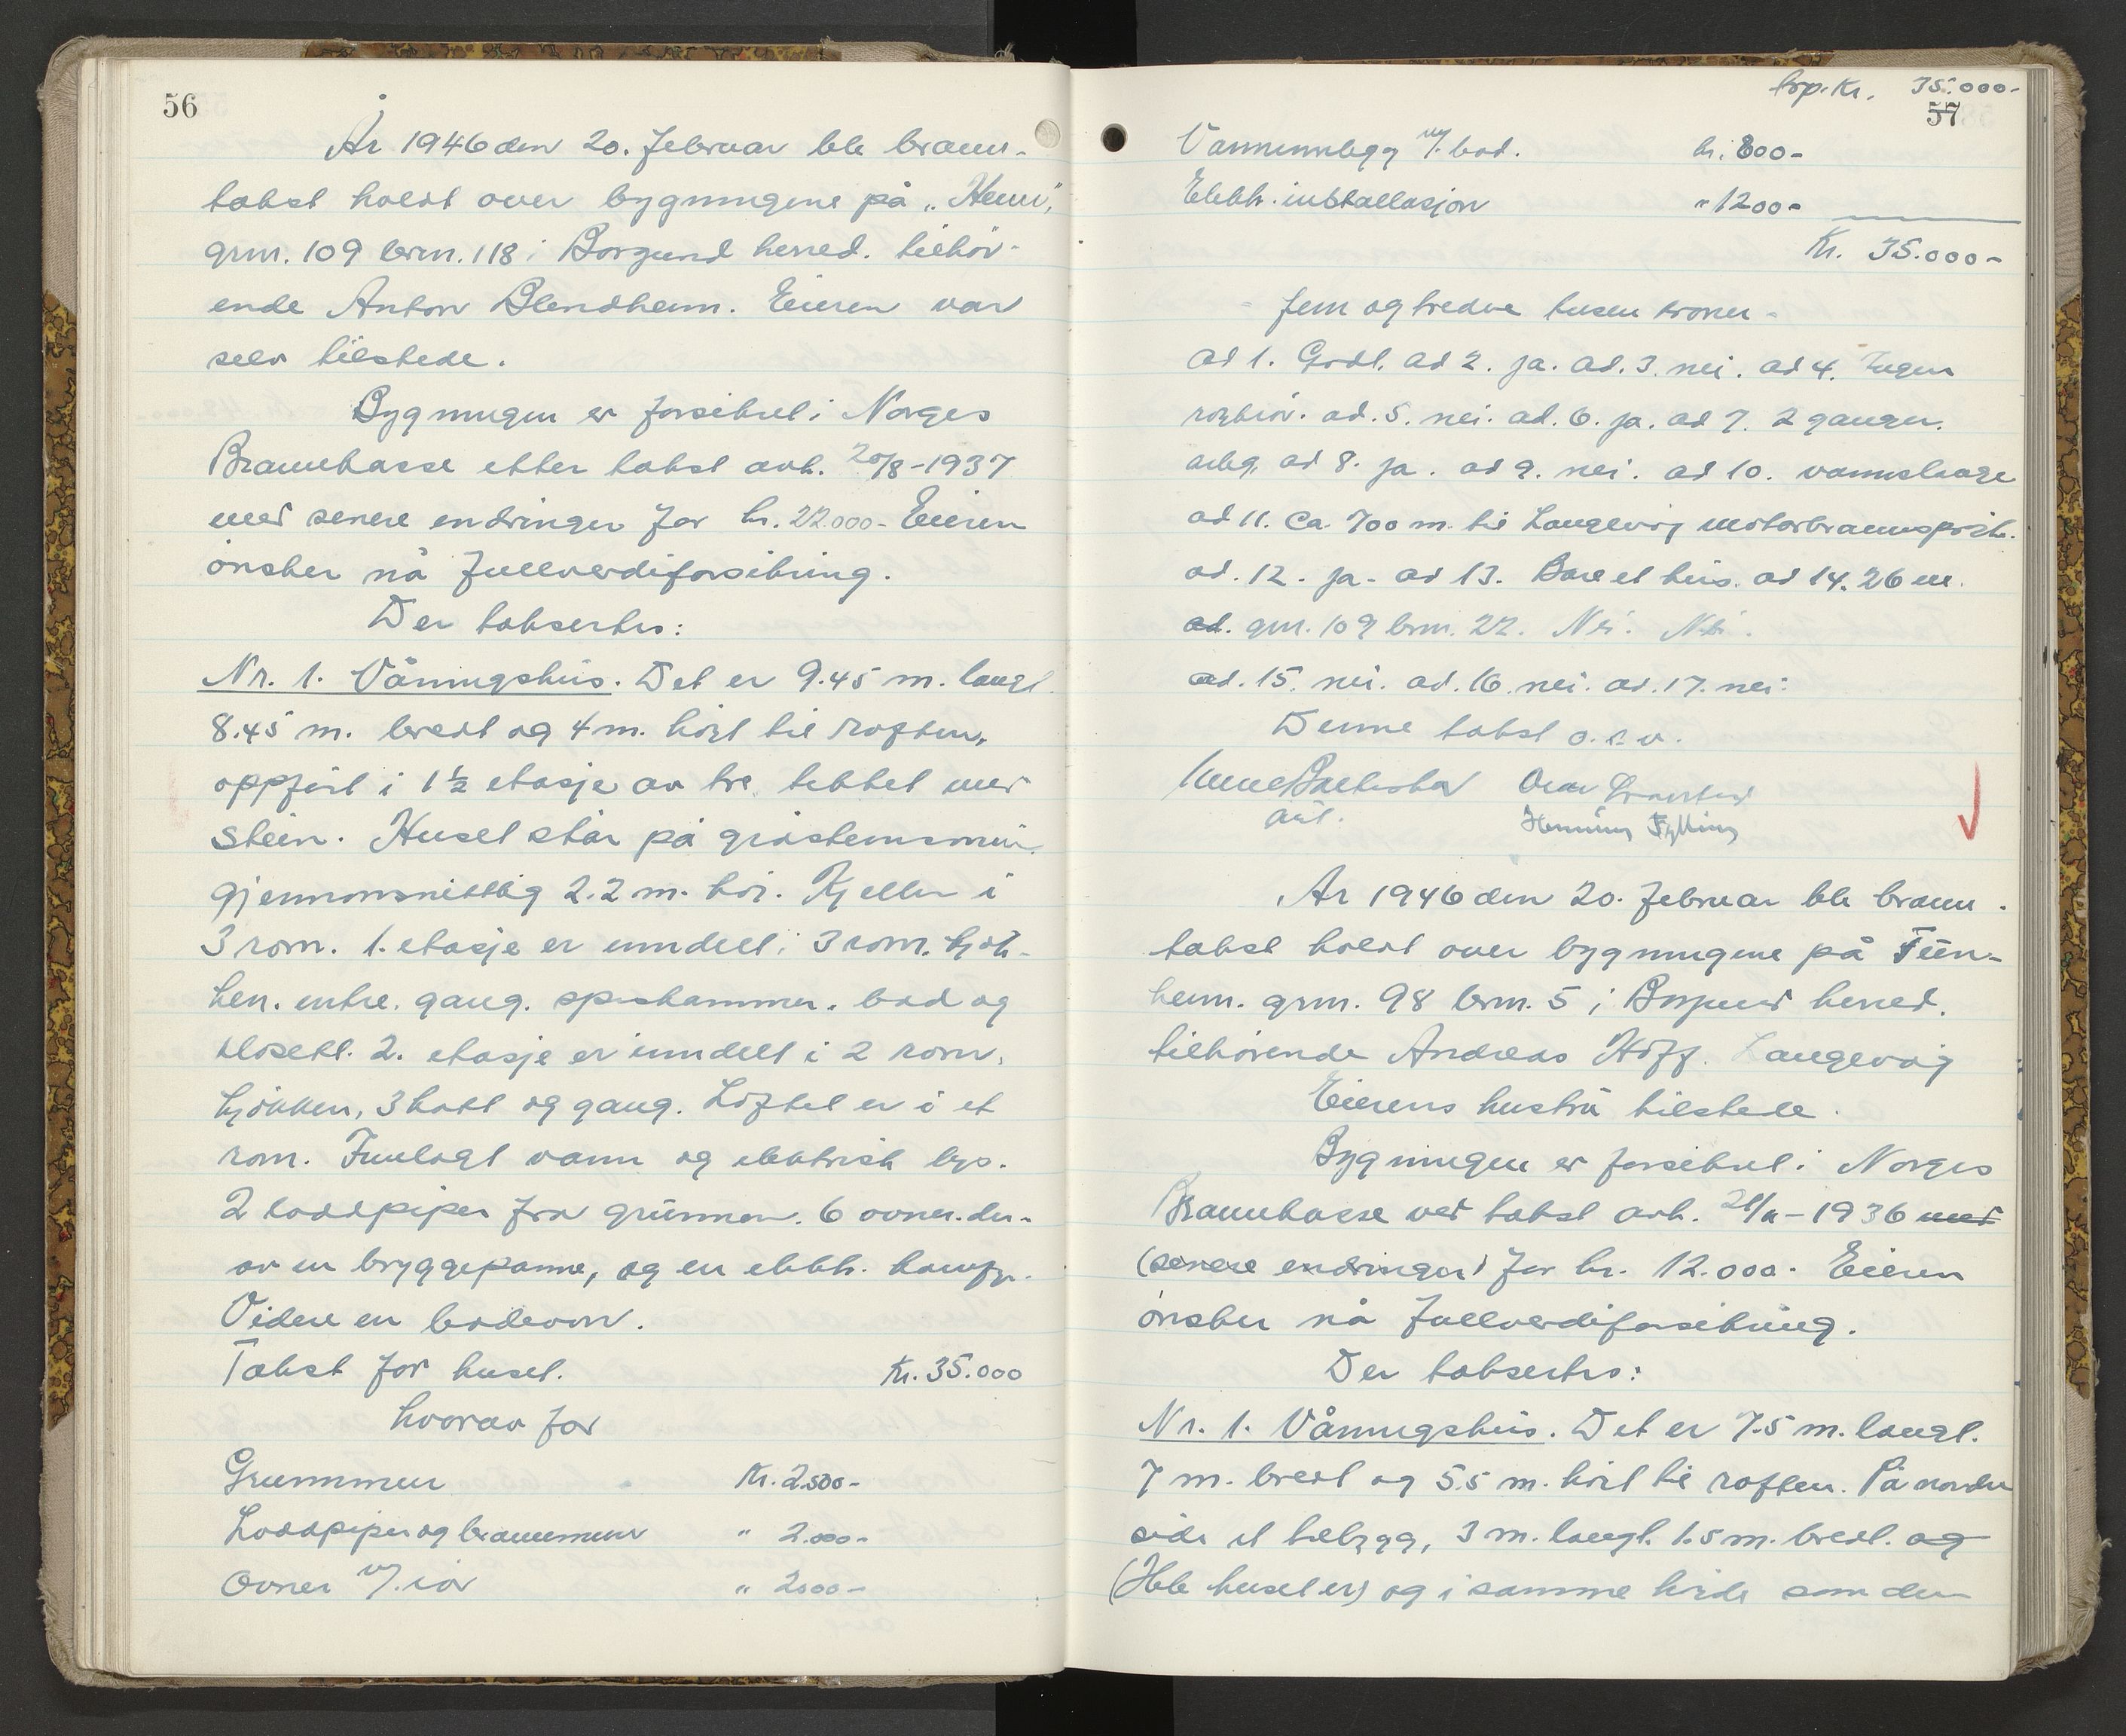 56
År 1946 den 20. februar ble brann-
takst holdt over bygningene på „Heim",
grnr. 109 brnr. 118 i Borgund herred. tilhør-
ende Anton Blendheim. Eieren var
selv tilstede.
Bygningen er forsikret i Norges
Brannkasse etter takst avh. 20/8-1937
med senere endringer for kr. 22.000- Eieren
ønsker nå fullverdiforsikring.
Der taksertes:
Nr. 1. Våningshus. Det er 9.45 m. langt
8.45 m. bredt og 4 m. høgt til raften,
oppført i 1½ etasje av tre tekket med
stein. Huset står på gråsteinsmur
gjennomsnittlig 2.2 m. høi. Kjeller i
3 rom. 1. etasje er inndelt i 3 rom. kjøk-
ken. entre. gang. spiskammer. bad og
klosett. 2. etasje er inndelt i 2 rom,
kjøkken, 3 kott og gang. Loftet er i et
rom. Innlagt vann og elektrisk lys.
2 loddpiper fra grunnen. 6 ovner. der-
av en bryggepanne, og en elektr. komfyr.
Videre en badeovn.
Takst for huset. Kr. 35.000
hvorav for
Grunnmur Kr. 2.500-
Loddpiper og brannmur " 2.000-
Ovner m/. rør " 2000-
trp. Kr. 35.000-
57
Vanninnlegg m/. bad. kr. 800-
Elektr. installasjon " 1200-
Kr. 35.000-
- fem og tredve tusen kroner -
ad 1. Godt. ad 2. ja. ad. 3. nei. ad 4. Ingen
ad. 5. nei. ad. 6. ja. ad 7. 2 ganger.
ad 8. ja. ad 9. nei. ad 10. vannslange
ad 11. Ca. 700 m. til Langevåg motorbrannsprøite.
ad. 12. ja. ad 13. Bare et hus. ad 14. 26 m.
ad. gnr. 109 brnr. 22. Nei. Nei.
ad. 15. nei. ad. 16. nei. ad. 17. nei:
Denne takst o.s.v.
Henning Fylling
År 1946 den 20. februar ble brann-
takst holdt over bygningene på Tun-
heim. grnr. 98 brnr. 5 i Borgund herred.
tilhørende Andreas Hoff. Langevåg
Eierens hustru tilstede.
Bygningen er forsikret i Norges
Brannkasse ved takst avh. 21/11-1936 med
(senere endringer) for kr. 12.000- Eieren
ønsker nå fullverdiforsikring.
Der taksertes:
Nr. 1. Våningshus. Det er 7.5 m. langt.
7 m. bredt og 5.5 m. høit til raften. På nordre
side et tilbygg, 3 m. langt. 1.5 m. bredt. og
(Hele huset er) og i samme høide som den